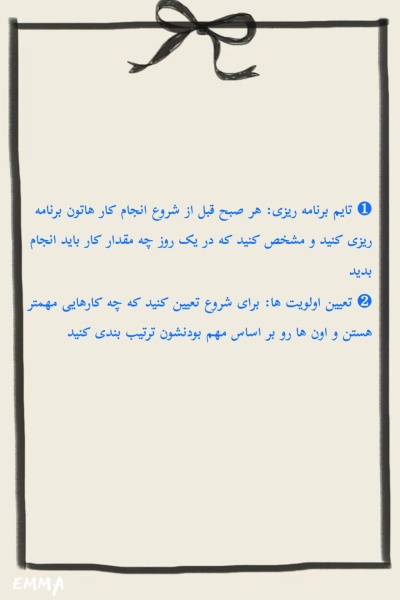 ❶ تایم برنامه ریزی: هر صبح قبل از شروع انجام کار هاتون برنامه
ریزی کنید و مشخص کنید که در یک روز چه مقدار کار باید انجام
بدید
❷ تعیین اولویت ها: برای شروع تعیین کنید که چه کارهایی مهمتر
هستن و اون ها رو بر اساس مهم بودنشون ترتیب بندی کنید
EMMA